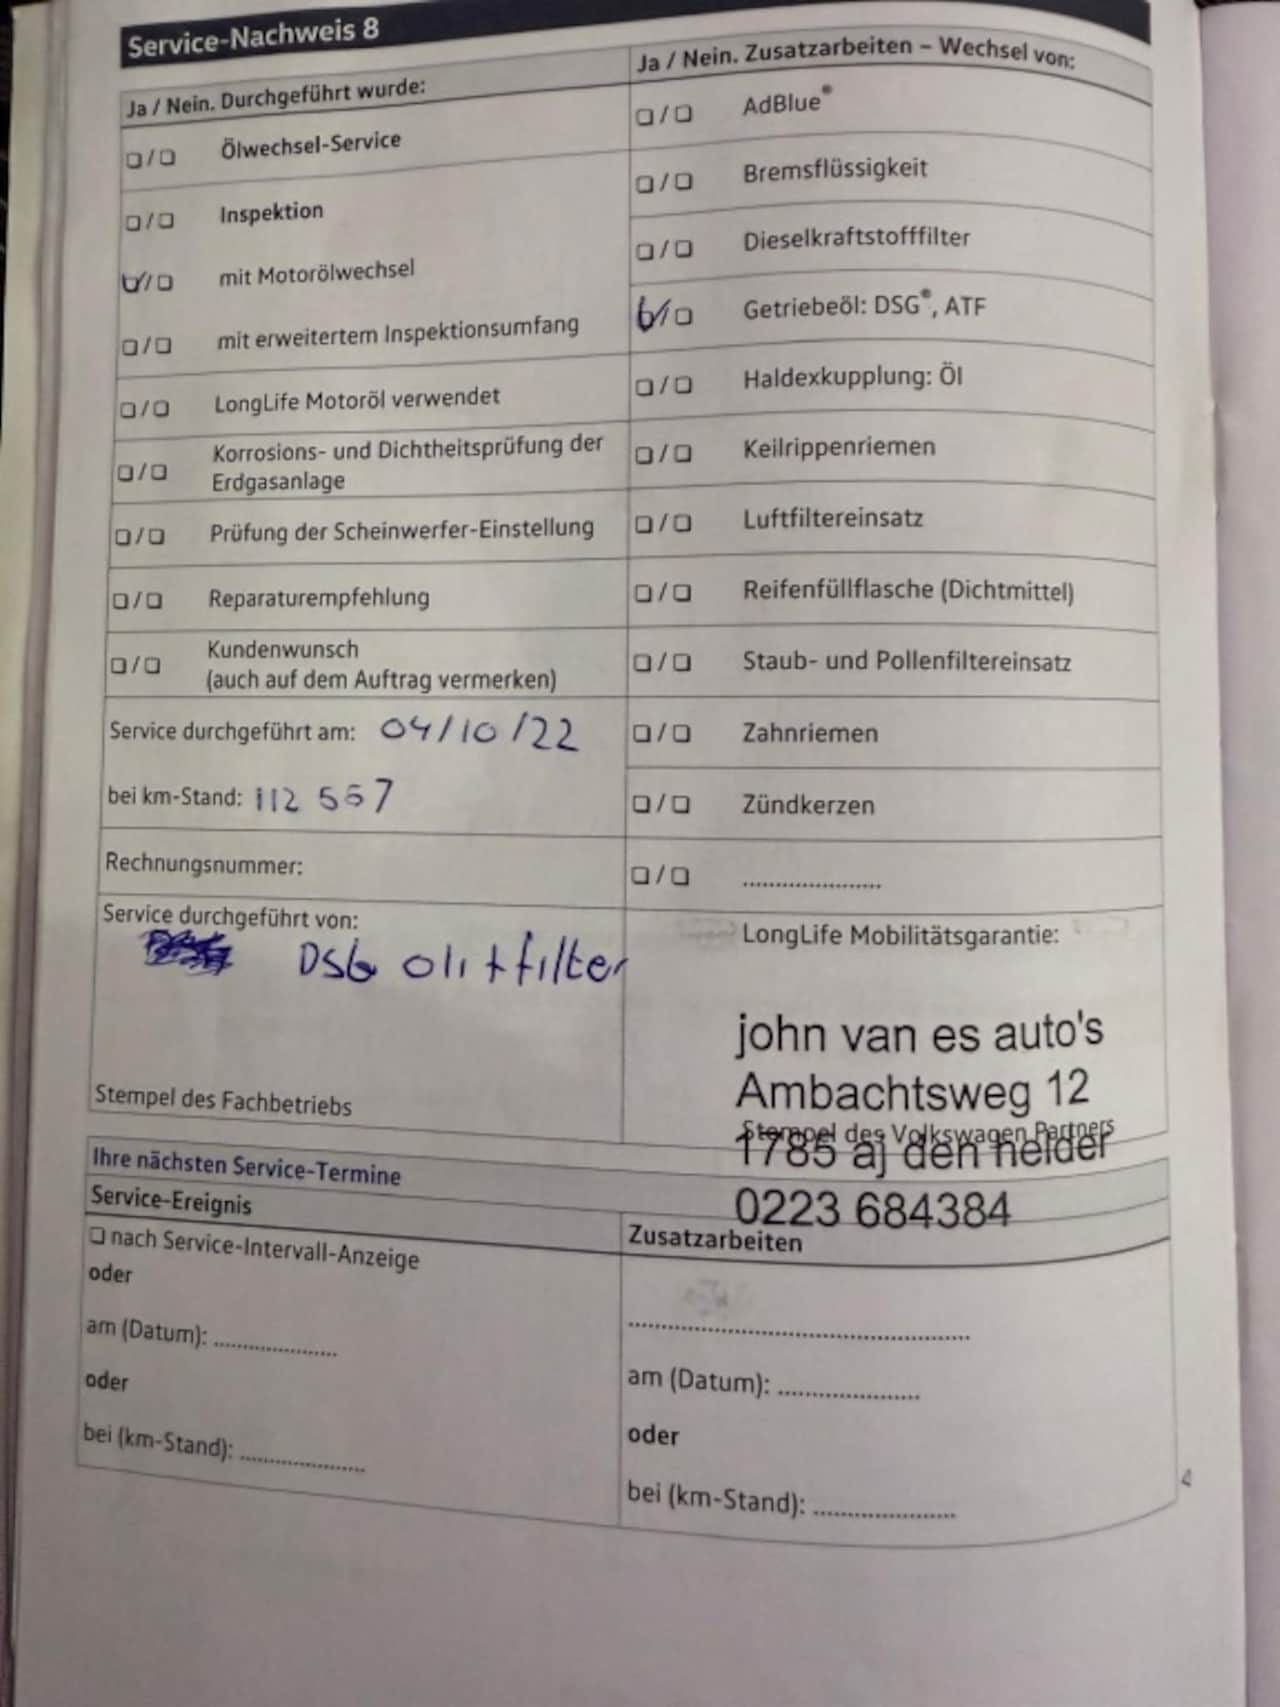 Service-Nachweis 8
Ja / Nein. Durchgeführt wurde:
❑ / ❑ Ölwechsel-Service
❑ / ❑ Inspektion
☑ / ❑ mit Motorölwechsel
❑ / ❑ mit erweitertem Inspektionsumfang
❑ / ❑ LongLife Motoröl verwendet
❑ / ❑ Korrosions- und Dichtheitsprüfung der
Erdgasanlage
❑ / ❑ Prüfung der Scheinwerfer-Einstellung
❑ / ❑ Reparaturempfehlung
❑ / ❑ Kundenwunsch
(auch auf dem Auftrag vermerken)
Service durchgeführt am: 04/10/22
bei km-Stand: 112 557
Rechnungsnummer:
Service durchgeführt von:
DSG oli + filter
Stempel des Fachbetriebs
Ja / Nein. Zusatzarbeiten – Wechsel von:
❑ / ❑ AdBlue®
❑ / ❑ Bremsflüssigkeit
❑ / ❑ Dieselkraftstofffilter
☑ / ❑ Getriebeöl: DSG®, ATF
❑ / ❑ Haldexkupplung: Öl
❑ / ❑ Keilrippenriemen
❑ / ❑ Luftfiltereinsatz
❑ / ❑ Reifenfüllflasche (Dichtmittel)
❑ / ❑ Staub- und Pollenfiltereinsatz
❑ / ❑ Zahnriemen
❑ / ❑ Zündkerzen
❑ / ❑ .....................
LongLife Mobilitätsgarantie:
john van es auto's
Ambachtsweg 12
Stempel des Volkswagen Partners
1785 aj den helder
0223 684384
Ihre nächsten Service-Termine
Service-Ereignis
❑ nach Service-Intervall-Anzeige
oder
am (Datum): ...................
oder
bei (km-Stand): ...................
Zusatzarbeiten
....................................................
am (Datum): .....................
oder
bei (km-Stand): .....................
4